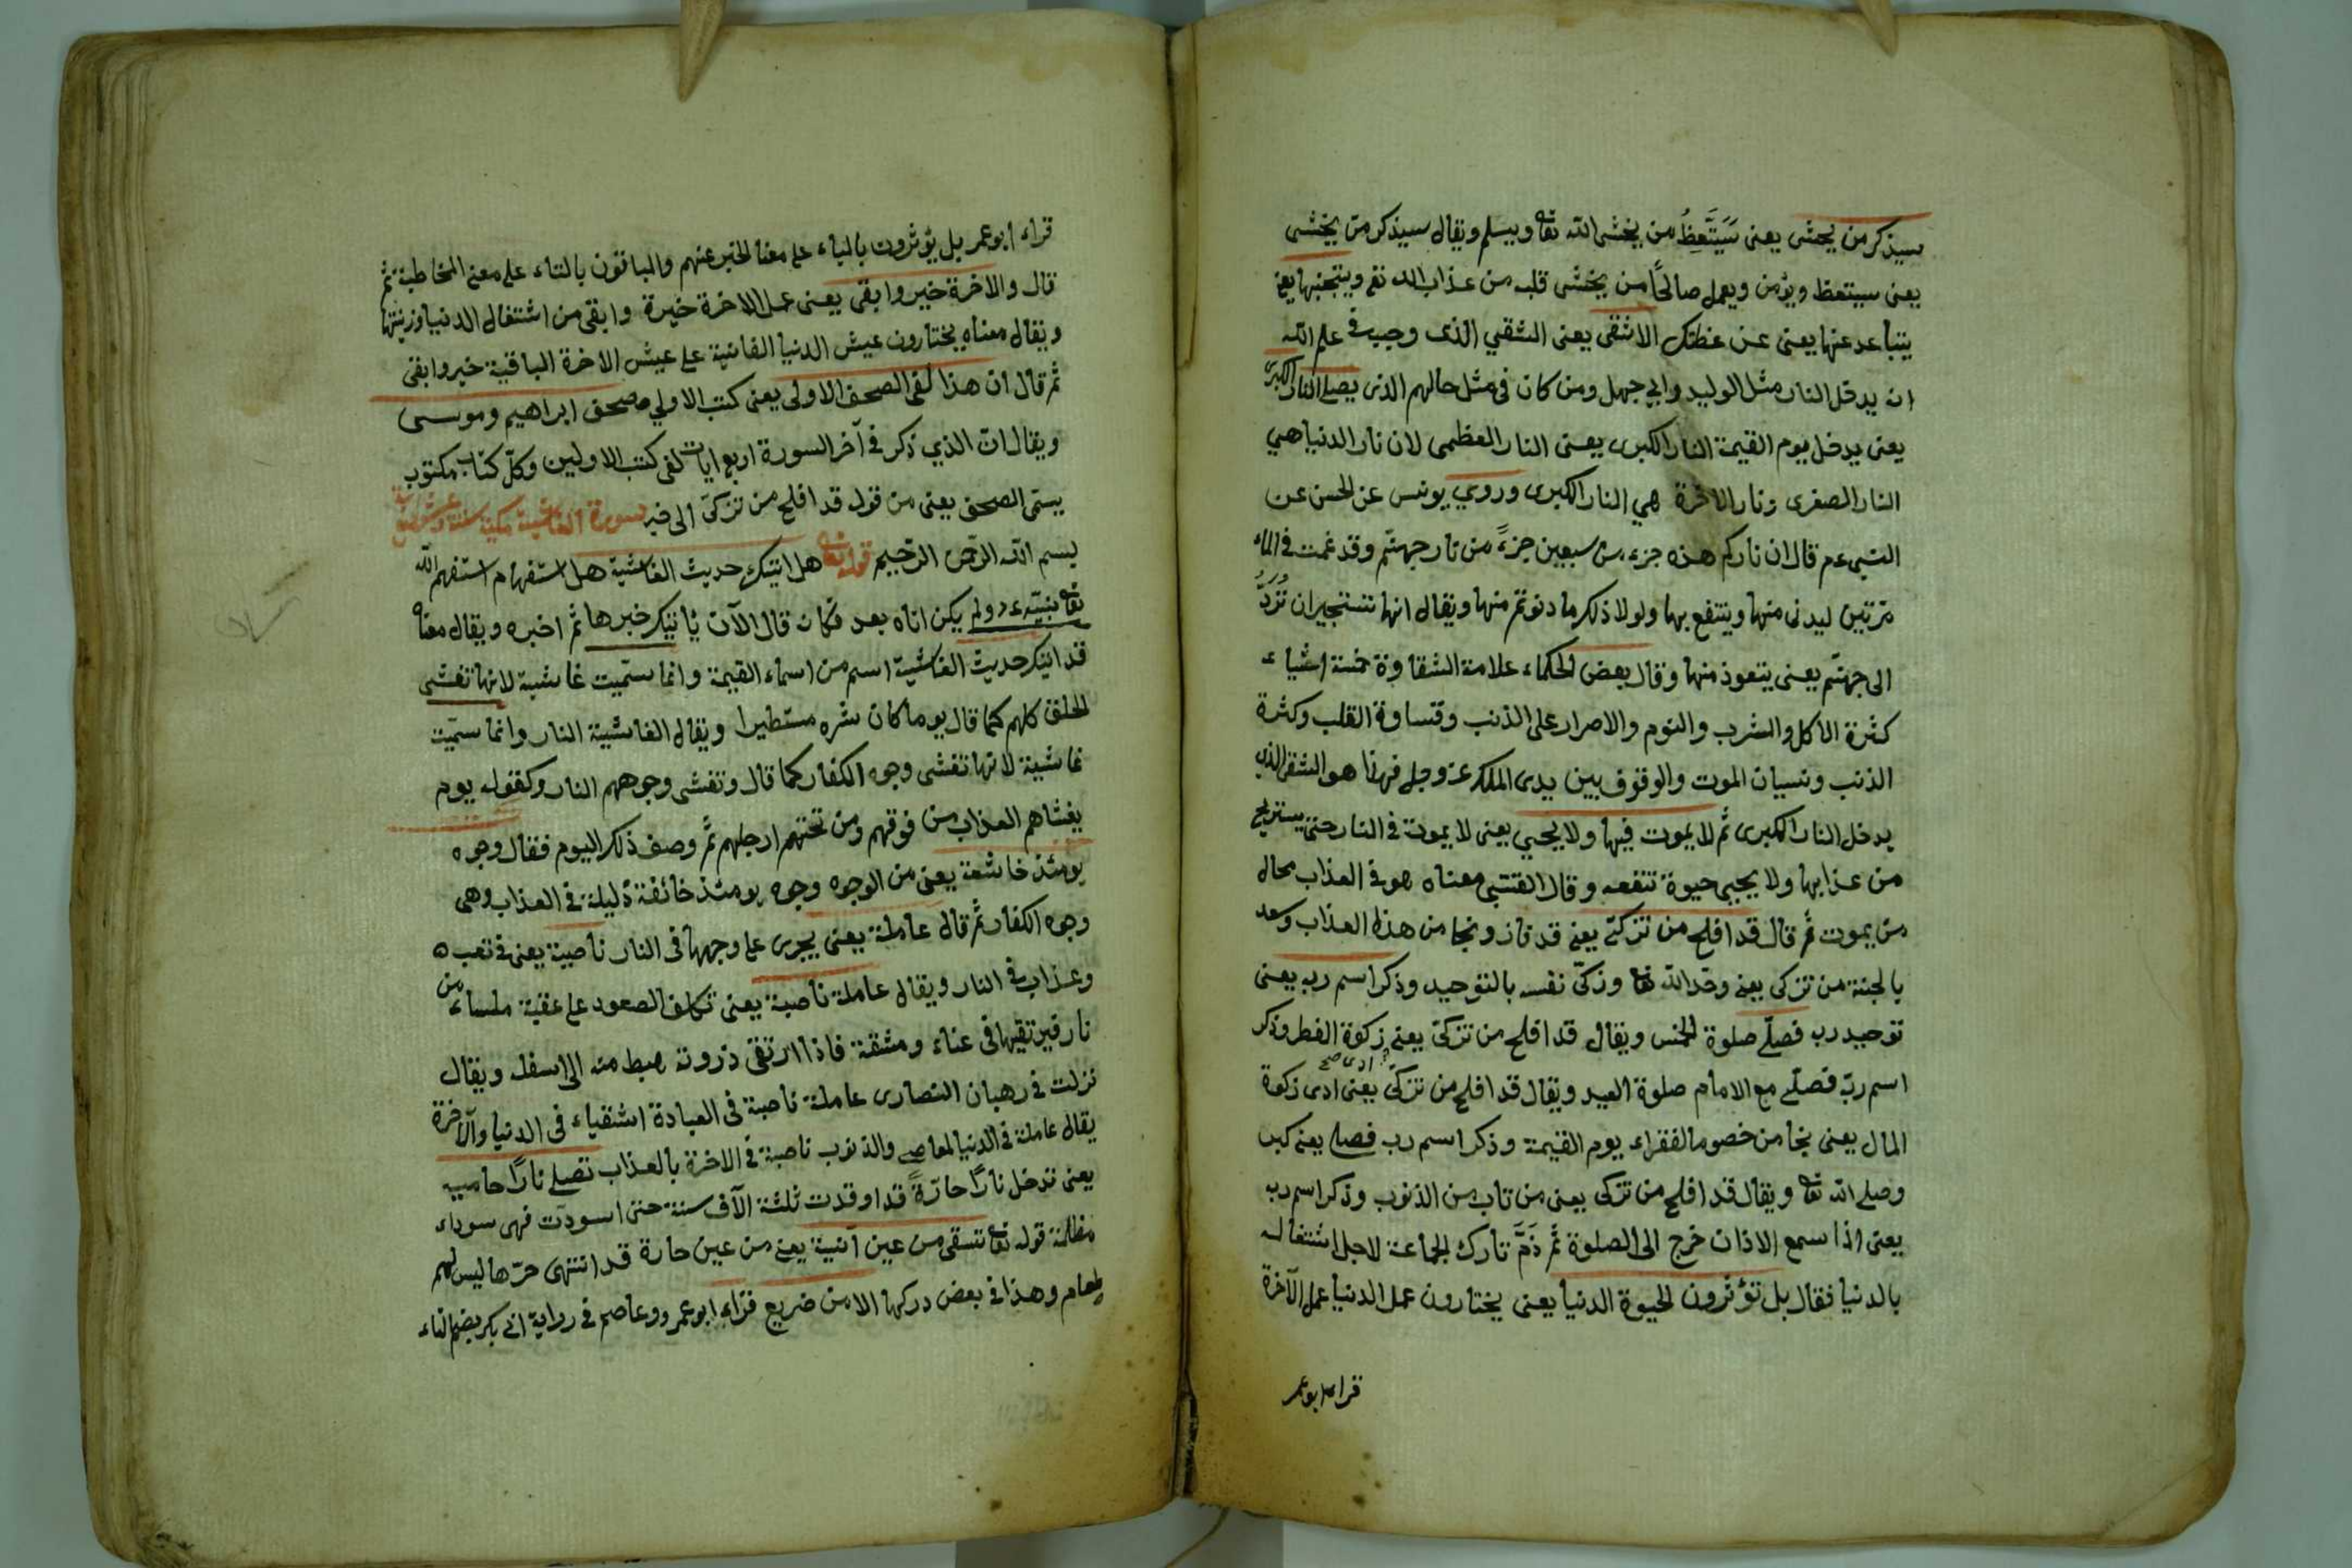 سيذكر من يخشى يعنى سَيَتَّعِظُ من يخشى الله تعا ويسلم ويقال سيذكر من يخشى
يعنى سيتعظ ويؤمن ويعمل صالحًا من يخشى قلبه من عذاب الله تع ويتجنبها يعنى
يتباعد عنها يعنى عن عظتك الاشقى يعنى الشقي الذى وجب فى علم الله
ان يدخل النار مثل الوليد وابى جهل ومن كان فى مثل حالهم الذى يصلى النار الكبرى
يعنى يدخل يوم القيمة النار الكبرى يعنى النار العظمى لان نار الدنيا هي
النار الصغرى ونار الاخرة هي النار الكبرى وروي يونس عن الحسن عن
النبى عم قال ان ناركم هذه جزء من سبعين جزءً من نار جهنّم وقد غمت فى الماء
مرّتين ليدنى منها وينتفع بها ولولا ذلك ما دنوتم منها ويقال انها تستجير ان تُرَدَّ
الى جهنّم يعنى يتعوذ منها وقال بعض الحكماء علامة الشقاوة خمسة اشياء
كثرة الاكل والشرب والنوم والاصرار على الذنب وقساوة القلب وكثرة
الذنب ونسيان الموت والوقوف بين يدى الملك عز وجل فهذا هو الشقى الذى
يدخل النار الكبرى ثم لا يموت فيها ولا يحيي يعنى لا يموت فى النار حتى يستريح
من عذابها ولا يحيى حيوة تنفعه وقال القتبي معناه هو فى العذاب بحال
من يموت ثم قال قد افلح من تزكّى يعنى قد فاز ونجا من هذا العذاب وسعد
بالجنة من تزكى يعنى وحّد الله تعا وزكّى نفسه بالتوحيد وذكر اسم ربه يعنى
توحيد ربه فصلّى صلوة الخمس ويقال قد افلح من تزكّى يعنى زكوة الفطر وذكر
اسم ربّه فصلّى مع الامام صلوة العيد ويقال قد افلح من تزكّى يعنى ادى زكوة
المال يعنى نجا من خصومة الفقراء يوم القيمة وذكر اسم ربه فصلى يعنى كبر
وصلى الله تعا ويقال قد افلح من تزكى يعنى من تاب من الذنوب وذكر اسم ربه
يعنى اذا سمع الاذان خرج الى الصلوة ثم ذَمَّ تارك الجماعة لاجل اشتغاله
بالدنيا فقال بل تؤثرون الحيوة الدنيا يعنى يختارون عمل الدنيا عمل الآخرة
قراء ابو عمر
قراء ابو عمر بل يؤثرون بالياء على معنا الخبر عنهم والباقون بالتاء على معنى المخاطبة ثم
قال والاخرة خير وابقى يعنى عمل الاخرة خيرة وابقى من اشتغال الدنيا وزينتها
ويقال معناه يختارون عيش الدنيا الفانية على عيش الاخرة الباقية خير وابقى
ثم قال ان هذا لفى الصحف الاولى يعنى كتب الاولي صحف ابراهيم وموسى
ويقال ان الذي ذكر فى آخر السورة اربع ايات لفى كتب الاولين وكلّ كتاب مكتوب
يسمّى الصحف يعنى من قوله قد افلح من تزكّى الى فيه سورة الغاشية مكية ست وعشرون آية
بسم الله الرحمن الرحيم قوله تعا هل اتيك حديث الغاشية هل استفهام استفهم الله
تعا نبيّه عم ولم يكن اتاه بعد فكان قال الآن يأتيك خبرها ثم اخبره ويقال معناه
قد اتيك حديث الغاشية اسم من اسماء القيمة وانما سمّيت غاشية لانها تغشى
الخلق كلهم كما قال يوما كان شره مستطيرا ويقال الغاشية النار وانما سمّيت
غاشية لانها تغشى وجوه الكفار كما قال وتغشى وجوههم النار وكقوله يوم
يغشاهم العذاب من فوقهم ومن تحتهم ارجلهم ثم وصف ذلك اليوم فقال وجوه
يومئذ خاشعة يعنى من الوجوه وجوه يومئذ خائفة ذليلة فى العذاب وهى
وجوه الكفار ثم قال عاملة يعنى يجرى على وجهها فى النار ناصبة يعنى فى تعب
وعذاب فى النار ويقال عاملة ناصبة يعنى تكلف الصعود على عقبة ملساء من
نار فيرتقيها فى عناء ومشقة فاذا ارتقى ذروته هبط منه الى اسفله ويقال
نزلت فى رهبان النصارى عاملة ناصبة فى العبادة اشقياء فى الدنيا والآخرة
يقال عاملة فى الدنيا لمعاصى والذنوب ناصبة فى الاخرة بالعذاب تصلى نارًا حامية
يعنى تدخل نارًا حارّةً قد اوقدت ثلثة آلاف سنة حتى اسودّت فهى سوداء
مظلمة قوله تعا تسقى من عين آنية يعنى من عين حارة قد انتهى حرّها ليس لهم
طعام وهذا فى بعض دركها الا من ضريع قراء ابو عمرو وعاصم فى رواية ابى بكر بضم التاء